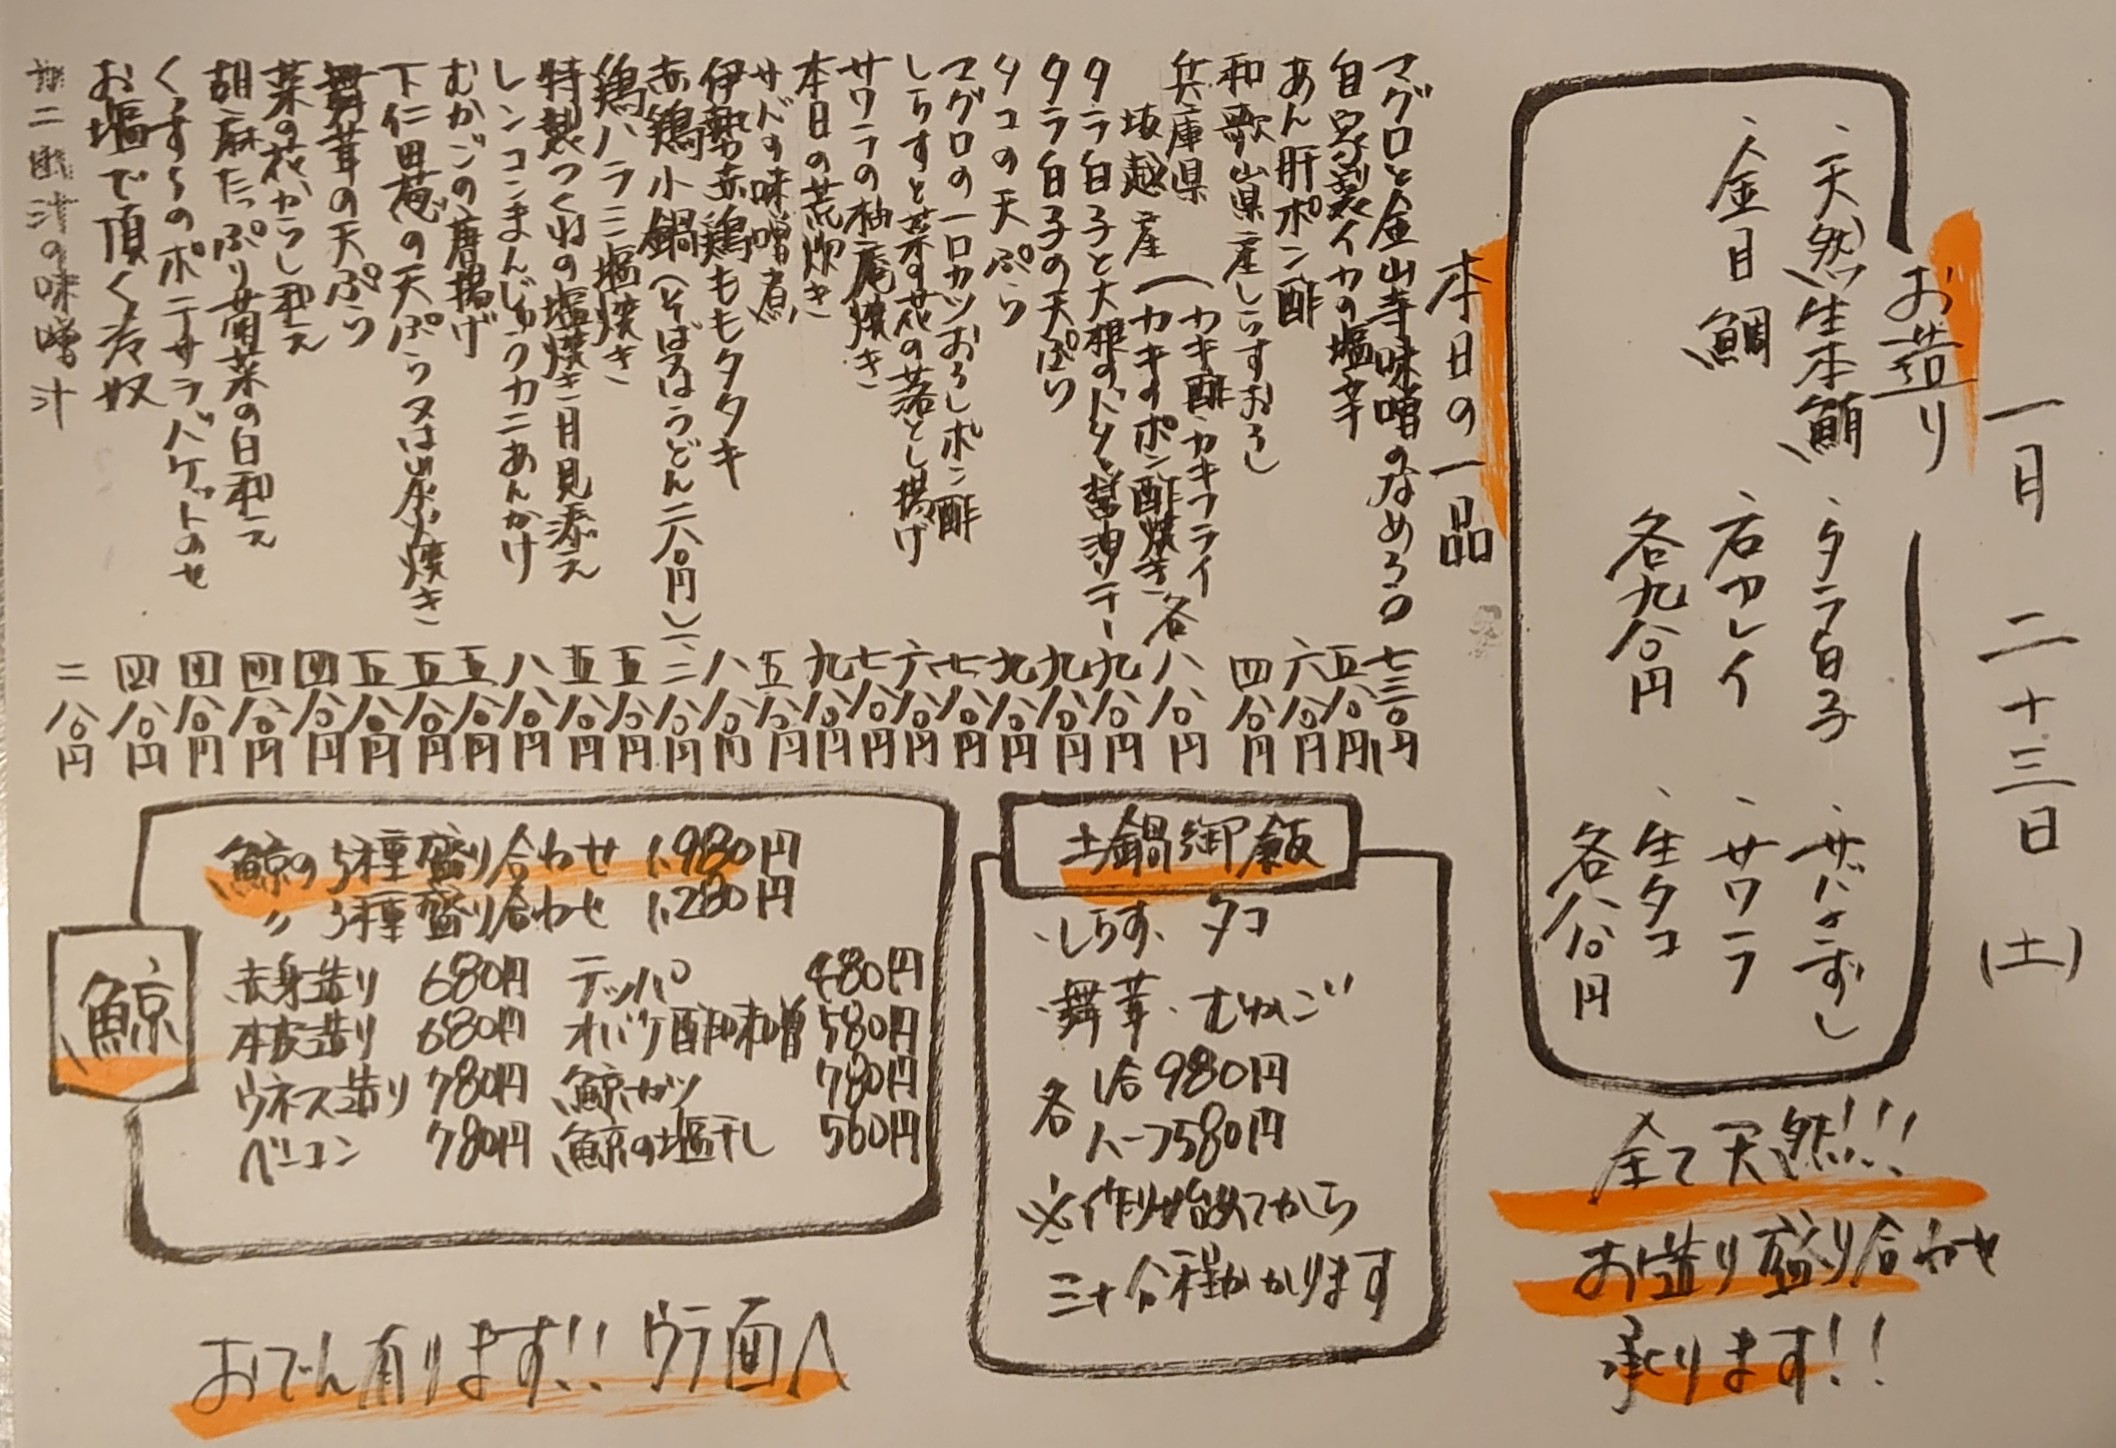 一月 二十三日 (土)
お造り
、天然生本鮪 、タラ白子 、サバきずし
、金目鯛 、石カレイ 、サワラ
各九八〇円 、生タコ
各八八〇円
全て天然!!!
お造り盛り合わせ
承ります!!
本日の一品
マグロと金山寺味噌のなめろう 七三〇円
自家製イカの塩辛 五八〇円
あん肝ポン酢 六八〇円
和歌山県産しらすおろし 四八〇円
兵庫県 (カキ酢、カキフライ
坂越産 (カキのポン酢焼き 各 八八〇円
タラ白子と大根のバター醤油ソテー 九八〇円
タラ白子の天ぷら 九八〇円
タコの天ぷら 九八〇円
マグロの一口カツおろしポン酢 七八〇円
しらすと菜の花の落とし揚げ 六八〇円
サワラの柚庵焼き 七八〇円
本日の荒炊き 九八〇円
サバの味噌煮 五八〇円
伊勢赤鶏ももタタキ 八八〇円
赤鶏小鍋(そば又はうどん二八〇円) 一、二八〇円
鶏ハラミ塩焼き 五八〇円
特製つくねの塩焼き月見添え 五八〇円
レンコンまんじゅうカニあんかけ 八八〇円
むかごの唐揚げ 五八〇円
下仁田葱の天ぷら又は炭火焼き 五八〇円
舞茸の天ぷら 五八〇円
菜の花からし和え 四八〇円
胡麻たっぷり菊菜の白和え 四八〇円
くずし豆ポテサラバケットのせ 四八〇円
お塩で頂く冷奴 四八〇円
味噌汁 二八〇円
土鍋御飯
、しらす、タコ
、舞茸、むかご
各 1合 980円
ハーフ580円
※作り始めてから
三十分程かかります
鯨
鯨の5種盛り合わせ 1,980円
〃 3種盛り合わせ 1,280円
赤身造り 680円 テッパ 480円
本皮造り 680円 オバケ酢味噌 580円
ウネス造り 780円 鯨カツ 780円
ベーコン 780円 鯨の塩干し 560円
おでん有ります!! ウラ面へ